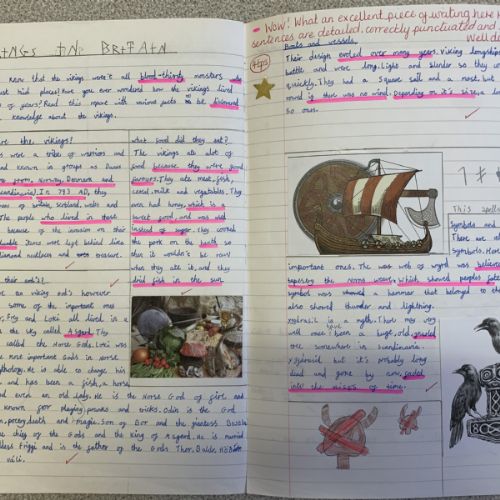 VIKINGS IN BRITAIN
know that the vikings weren't all blood-thirsty monsters who
most holy places? Have you ever wondered how the vikings lived
of years? Read this report with various facts to be
knowledge about the vikings.
were the vikings?
were a tribe of warriors and
and known in groups as Danes
from Norway, Denmark and
Scandinavia). In 793 AD, they
of Britain, Scotland, Wales and
The people who lived in these
because of the invasion on their
items were left behind lives
and treasure.
their gods?
are an viking god's however
some of the important ones
, Frey and Loki all lived in a
the sky called Asgard. They
called the Norse Gods. Loki was
the most important gods in norse
mythology. He is able to change his
and has been a fish, a horse
and even an old lady. He is the Norse God of fire and
known for playing pranks and tricks. Odin is the God
, poetry, death and magic. Son of Bor and the giantess
the king of the Gods and the king of Asgard. He is married
Frigg and is the father of the Gods Thor, Baldr, Höðr
váli.
what food did they eat?
The vikings ate alot of
food because they were good
farmers. They ate meat, fish,
cereal, milk and vegetables. They
even had honey, which is a
sweet food, and was used
instead of sugar. They cooked
the pork on the hearth so
that it wouldn't be raw
when they ate it, and they
dried fish in the sun.
Wow! What an excellent piece of writing here
sentences are detailed, correctly punctuated and
Well done
+6tps
Boats and vessels.
Their design evolved over many years. Viking longships
battle and were long, light and slender so they could
quickly. They had a square sail and a mast, but
rowed if there was no wind. Depending on it's size, a
so oars.
This spells
Symbols and
There are
Symbols. Here
important ones. The was web of wyrd was believed
tapestry the Norns weave. Which showed peoples fate
symbol was showed a hammer that belonged to
also showed thunder and lightning.
Yggdrasil is a myth. There may very
well once have been a huge, old, gnarled
tree somewhere in Scandinavia
Yggdrasil but it's probably long
dead and gone by now, faded
into the mists of time.